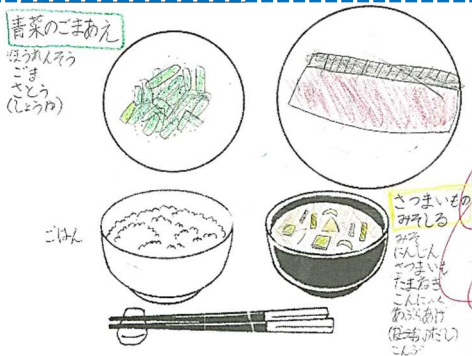 青菜のごまあえ
ほうれんそう
ごま
さとう
(しょうゆ)
ごはん
さつまいもの
みそしる
みそ
にんじん
さつまいも
たまねぎ
こんにゃく
あぶらあげ
こんぶ